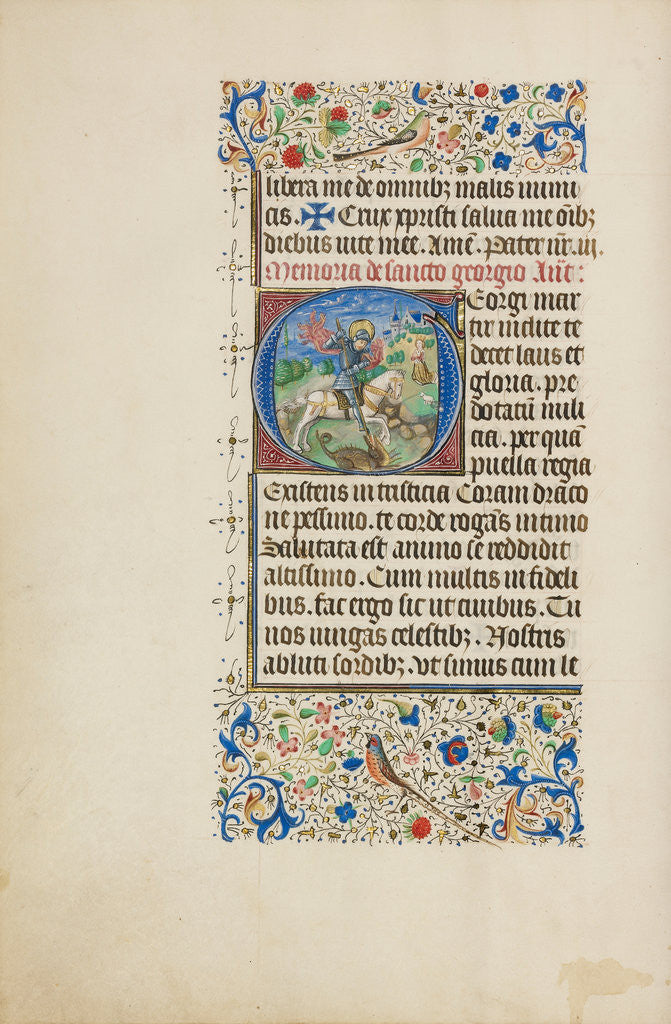 libera me de omnibꝫ malis inimi
cis. ✠ Crux xpristi salua me oībꝫ
diebus uite mee. Amē. Pater nr̄. iii.
Memoria de sancto georgio Añt:
GEorgi mar
tir inclite te
decet laus et
gloria. pre
dotatū mili
cia. per quā
puella regia
Existens in tristicia Coram draco
ne pessimo. te corde rogās intimo
Saluata est animo se reddidit
altissimo. Cum multis infideli
bus. fac ergo sic ut ciuibus. Tu
nos iungas celestibꝫ. Nostris
abluti sordibꝫ. vt simus cum le